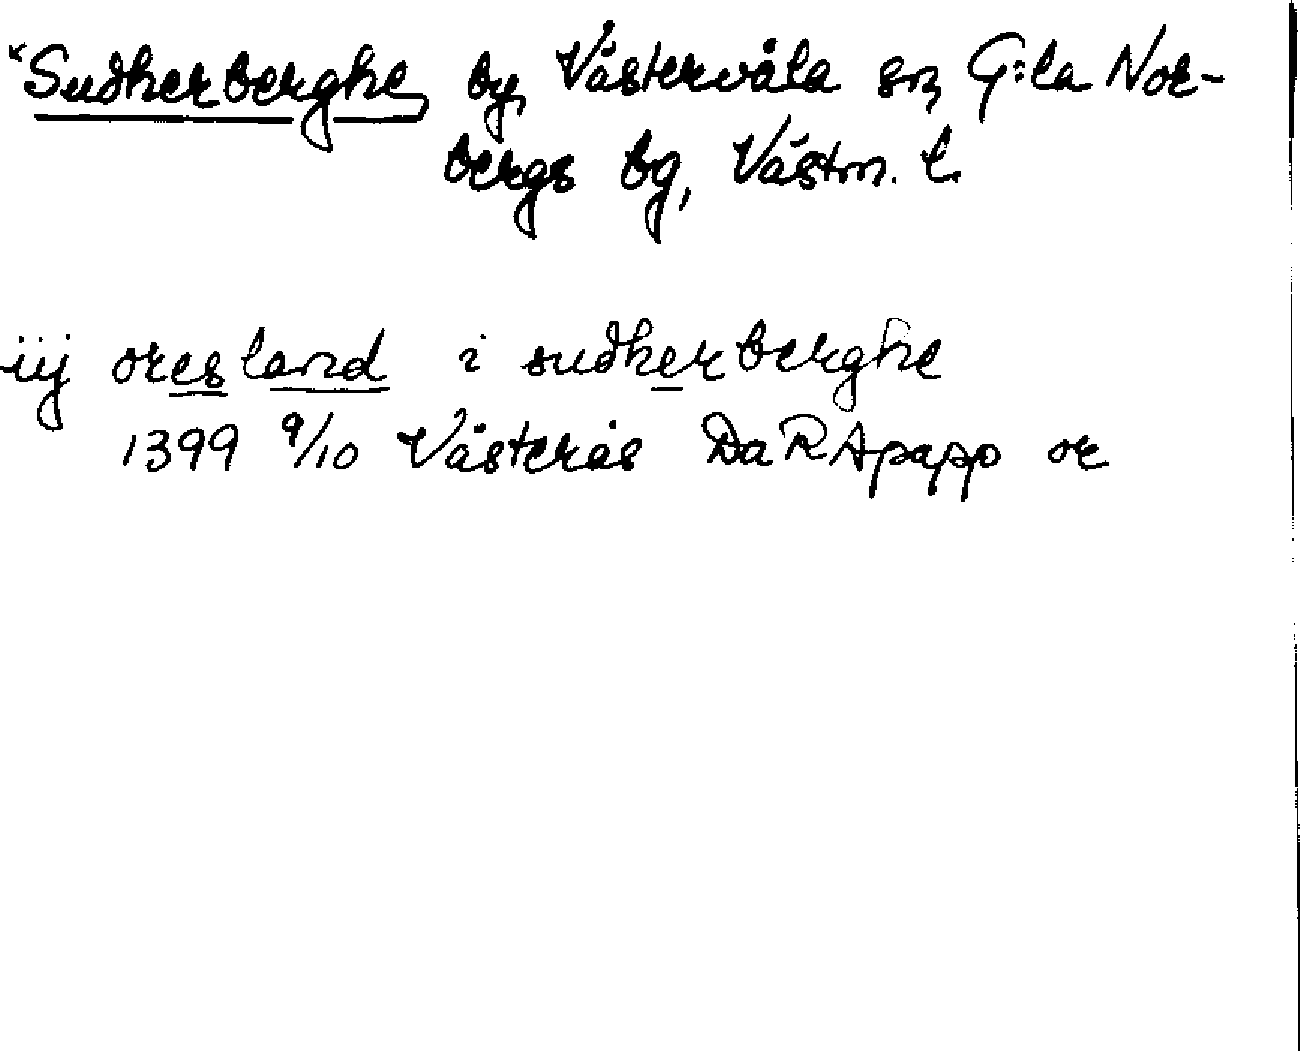 *Sudherberghe, by, Västervåla sn, G:la Nor-
bergs bg, Västm. l.
iij oresland i sudherberghe
1399 9/10 Västerås Da RApapp or